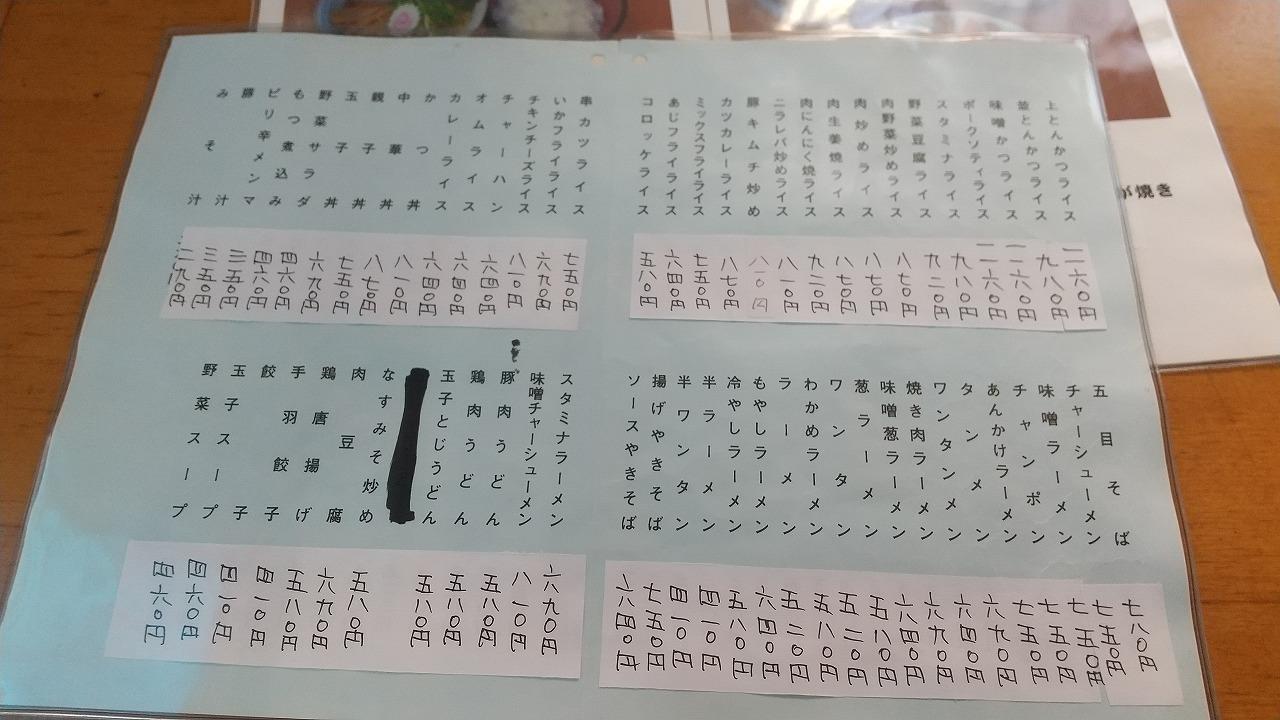 上とんかつライス
並とんかつライス
味噌かつライス
ポークソティライス
スタミナライス
野菜豆腐ライス
肉野菜炒めライス
肉炒めライス
肉生姜焼ライス
肉にんにく焼ライス
ニラレバ炒めライス
豚キムチ炒め
カツカレーライス
ミックスフライライス
あじフライライス
コロッケライス
一一六〇円
九八〇円
一一六〇円
一一六〇円
九八〇円
九二〇円
八七〇円
八七〇円
八七〇円
九二〇円
八一〇円
八一〇円
八七〇円
七五〇円
六四〇円
五八〇円
串カツライス
いかフライライス
チキンチーズライス
チャーハン
オムライス
カレーライス
かつ丼
中華丼
親子丼
玉子丼
野菜サラダ
もつ煮込み
ピリ辛メンマ
豚汁
みそ汁
七五〇円
六九〇円
八一〇円
六四〇円
六四〇円
六四〇円
八一〇円
八七〇円
七五〇円
六九〇円
四六〇円
四六〇円
三五〇円
三五〇円
二九〇円
五目そば
チャーシューメン
味噌ラーメン
チャンポン
あんかけラーメン
タンメン
ワンタンメン
焼き肉ラーメン
味噌葱ラーメン
葱ラーメン
ワンタン
わかめラーメン
ラーメン
もやしラーメン
冷やしラーメン
半ラーメン
半ワンタン
揚げやきそば
ソースやきそば
七八〇円
七五〇円
七五〇円
七五〇円
七五〇円
六九〇円
六四〇円
六九〇円
六四〇円
五八〇円
五二〇円
五八〇円
五二〇円
六四〇円
五八〇円
四一〇円
四一〇円
七五〇円
六四〇円
スタミナラーメン
味噌チャーシューメン
豚肉うどん
鶏肉うどん
玉子とじうどん
なすみそ炒め
肉豆腐
鶏唐揚げ
手羽餃子
餃子
玉子スープ
野菜スープ
六九〇円
八一〇円
五八〇円
五八〇円
五八〇円
五八〇円
六九〇円
五八〇円
四一〇円
四一〇円
四六〇円
四六〇円
が焼き